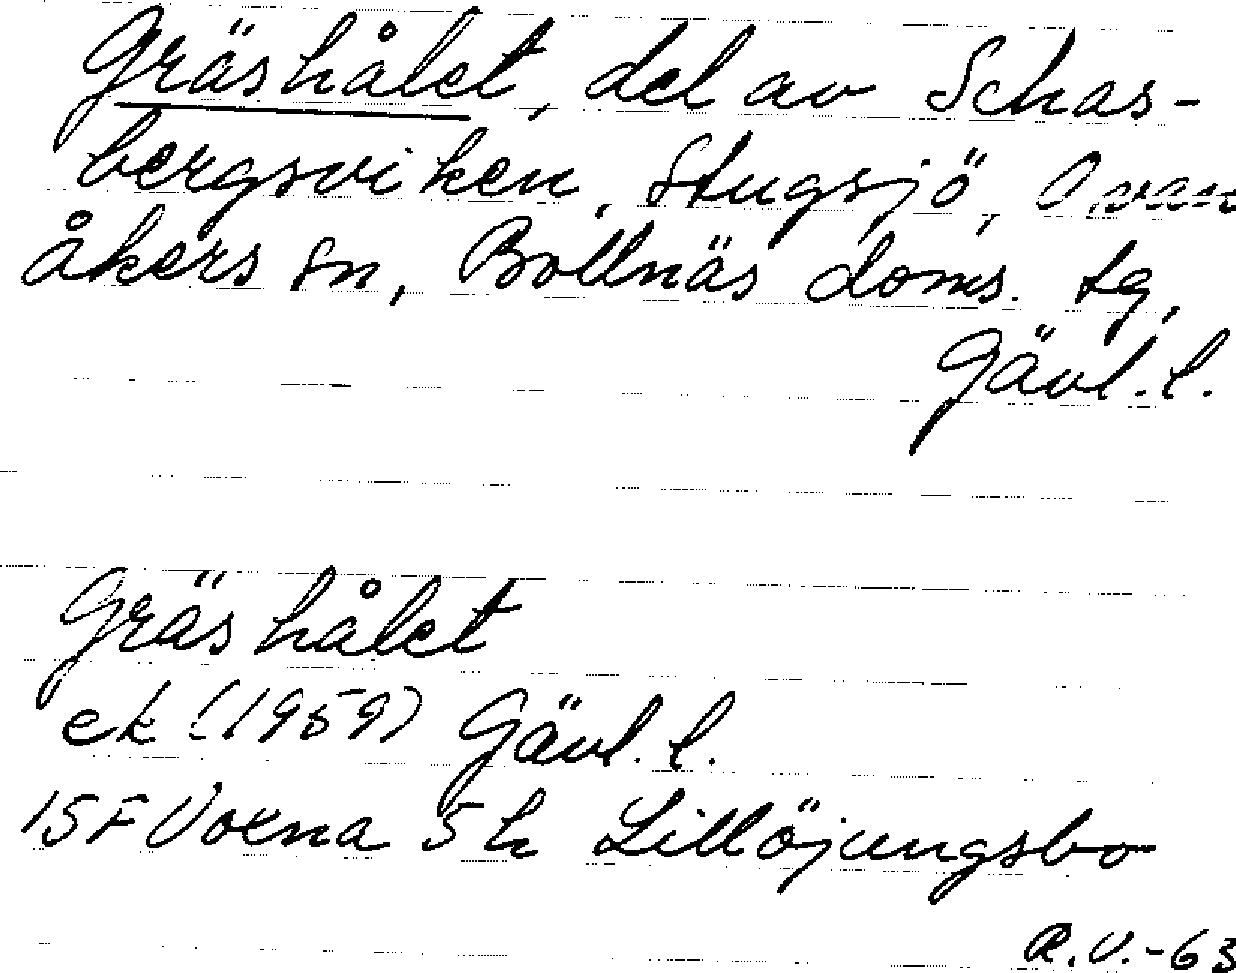 Gräshålet, del av Schas-
bergsviken, Stugsjö, Ovan
åkers sn, Bollnäs doms. tg,
Gävl. l.
Gräshålet
ek (1959) Gävl. l.
15F Voxna 5h Lillöjungsbo
R.V.-63